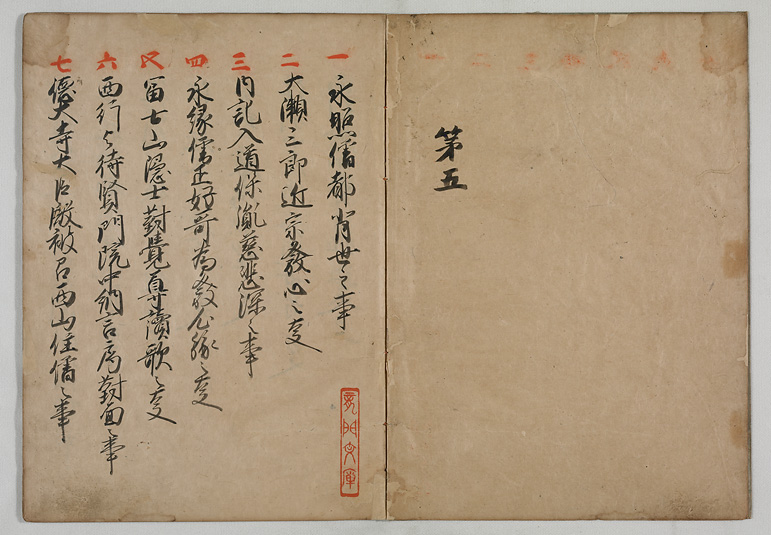 第五
一 永昭僧都背世之事
二 大瀬三郎近宗發心之事
三 内記入道保胤慈悲深之事
四 永縁僧正好哥為發心縁之事
五 冨士山隠士對覺尊讀歌之事
六 西行与待賢門院中納言局對面事
七 優大寺大臣殿被召西山住僧之事